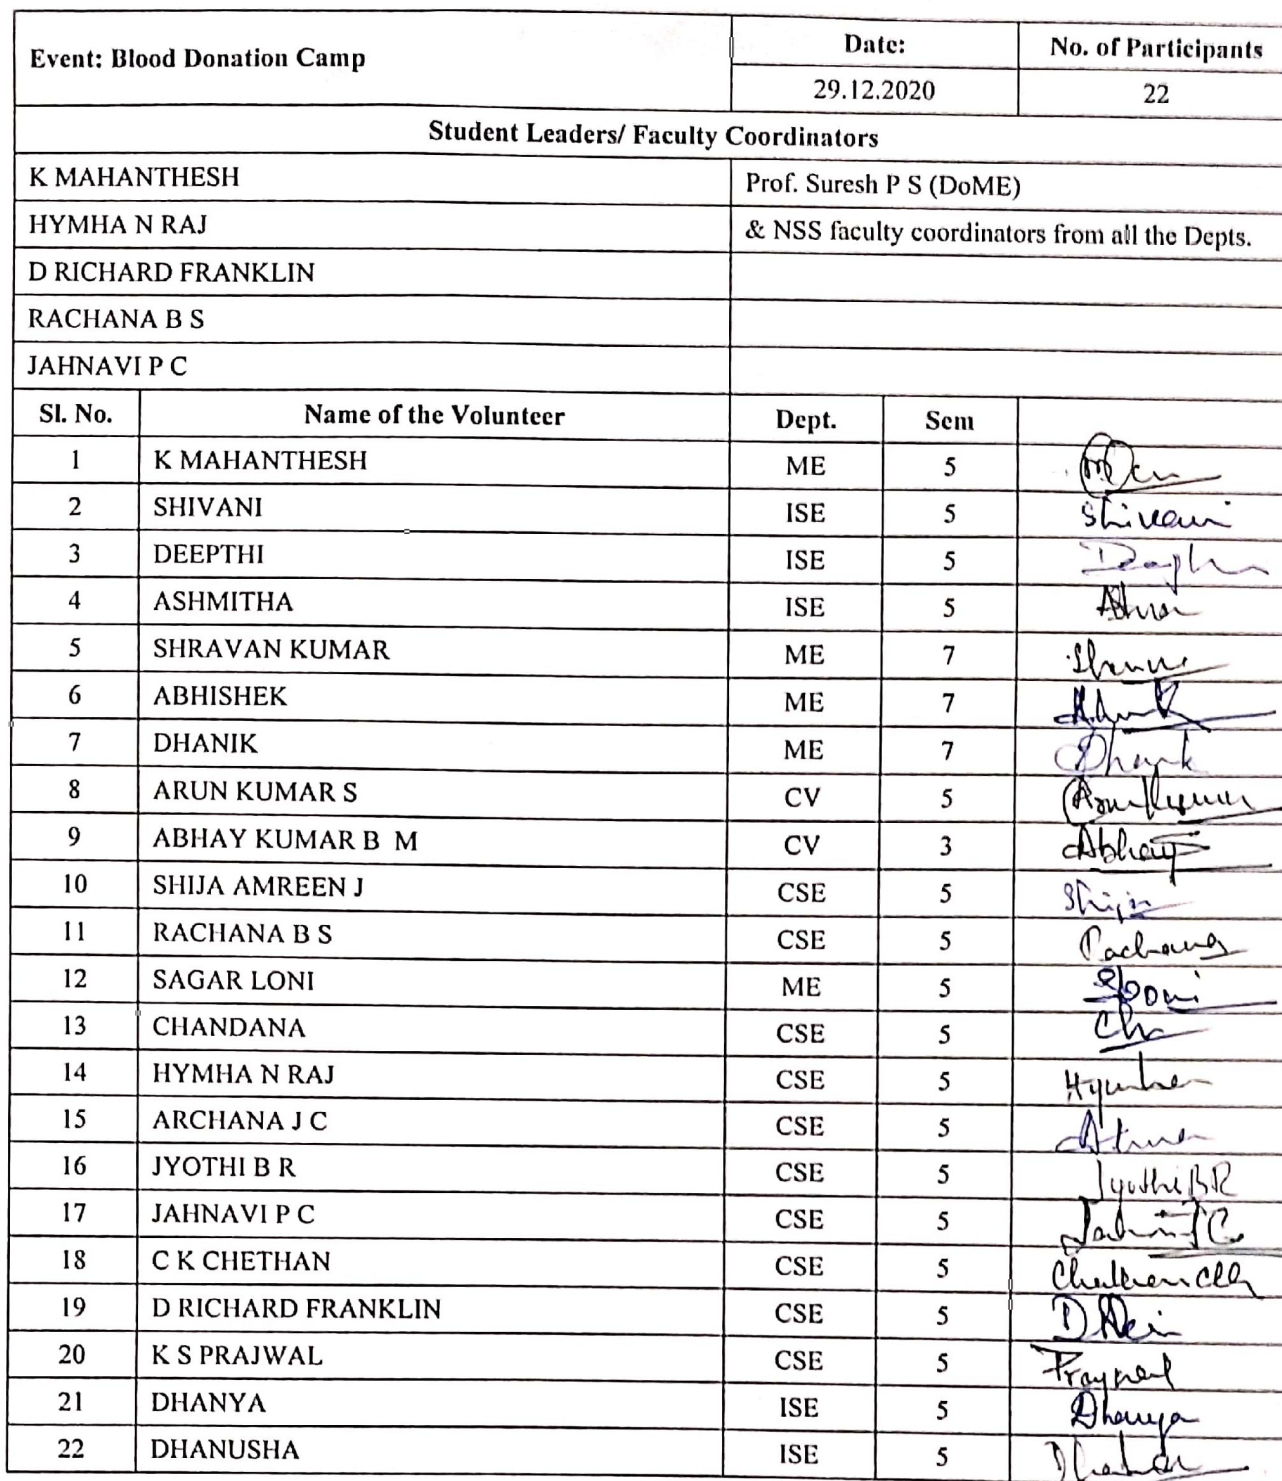 Event: Blood Donation Camp Date: No. of Participants
29.12.2020 22
Student Leaders/ Faculty Coordinators
K MAHANTHESH Prof. Suresh P S (DoME)
HYMHA N RAJ & NSS faculty coordinators from all the Depts.
D RICHARD FRANKLIN
RACHANA B S
JAHNAVI P C
Sl. No. Name of the Volunteer Dept. Sem
1 K MAHANTHESH ME 5
2 SHIVANI ISE 5 Shivani
3 DEEPTHI ISE 5
4 ASHMITHA ISE 5
5 SHRAVAN KUMAR ME 7
6 ABHISHEK ME 7
7 DHANIK ME 7 Dhanik
8 ARUN KUMAR S CV 5
9 ABHAY KUMAR B M CV 3 Abhay
10 SHIJA AMREEN J CSE 5 Shija
11 RACHANA B S CSE 5 Rachana
12 SAGAR LONI ME 5
13 CHANDANA CSE 5 Cha
14 HYMHA N RAJ CSE 5
15 ARCHANA J C CSE 5
16 JYOTHI B R CSE 5 Jyothi B R
17 JAHNAVI P C CSE 5
18 C K CHETHAN CSE 5
19 D RICHARD FRANKLIN CSE 5
20 K S PRAJWAL CSE 5
21 DHANYA ISE 5 Dhanya
22 DHANUSHA ISE 5